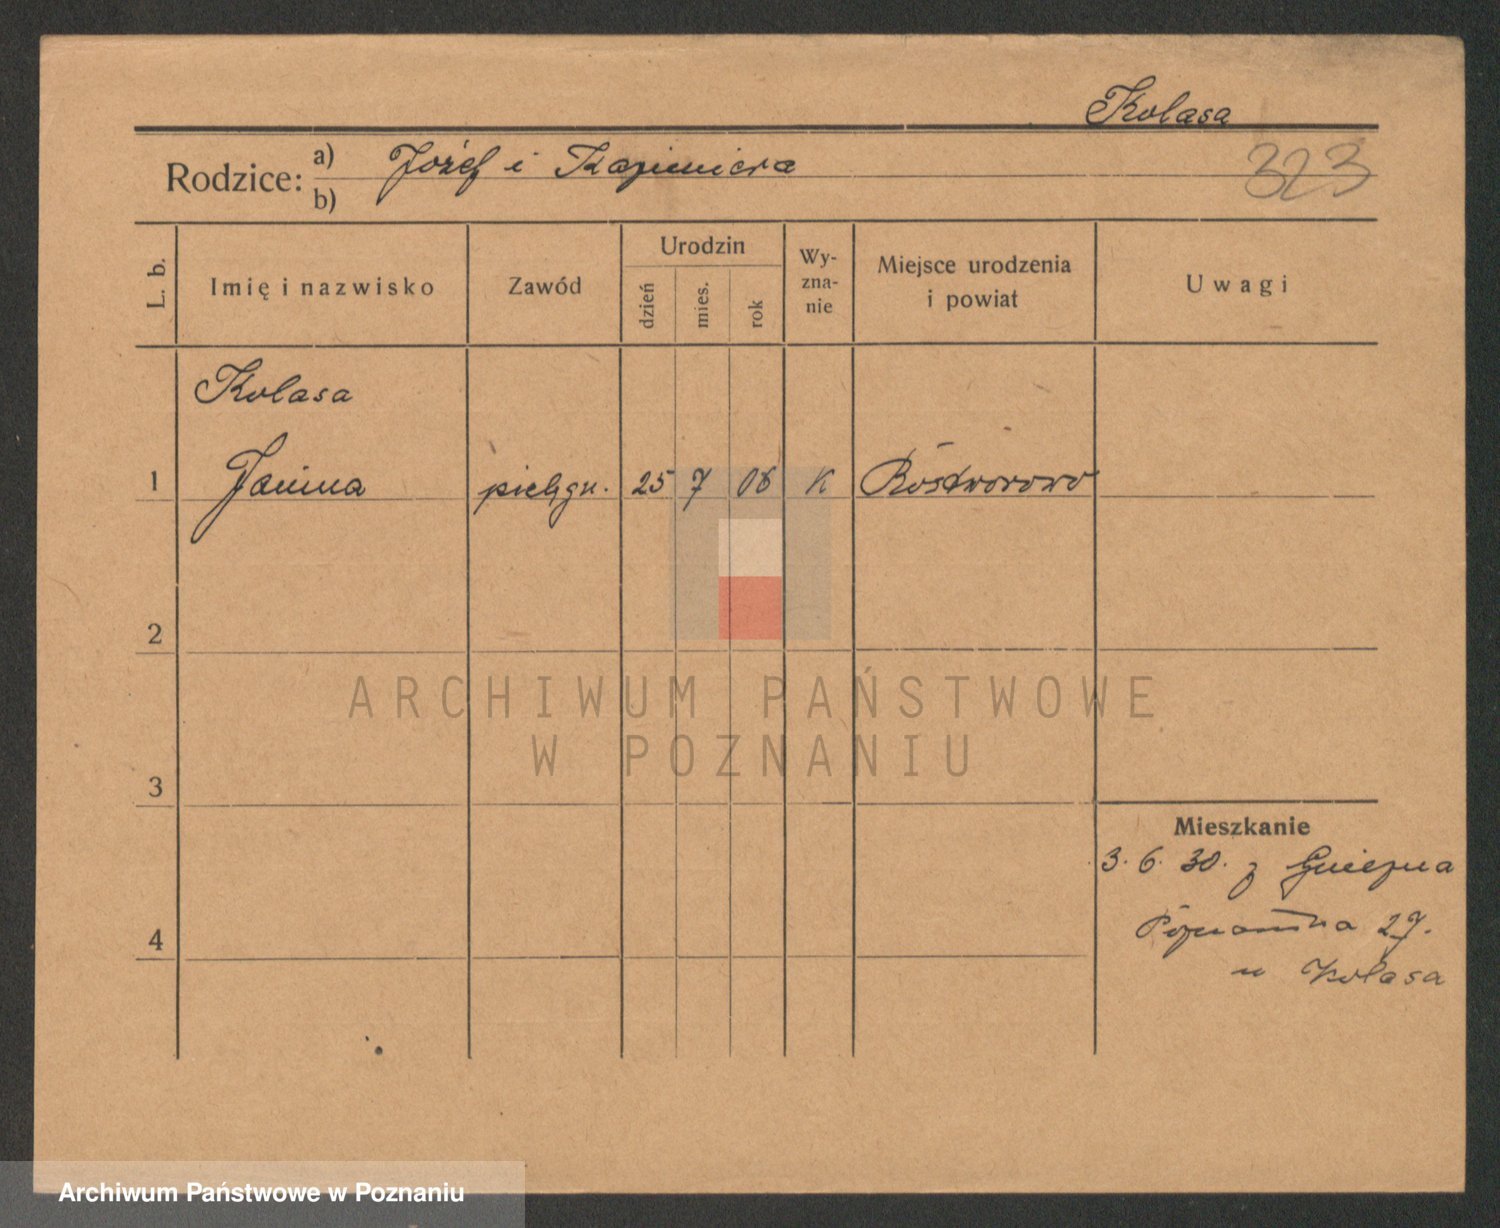 Kolasa
Rodzice: a) Józef i Kazimiera
b)
323
L. b.
Imię i nazwisko
Zawód
Urodzin
dzień
mies.
rok
Wy-
zna-
nie
Miejsce urodzenia
i powiat
Uwagi
Kolasa
1 Janina pielęgn. 25 7 06 K Rostworowo
2
ARCHIWUM PAŃSTWOWE
W POZNANIU
3
Mieszkanie
3. 6. 30. z Gniezna
4
Poznańska 27.
u Kolasa
Archiwum Państwowe w Poznaniu